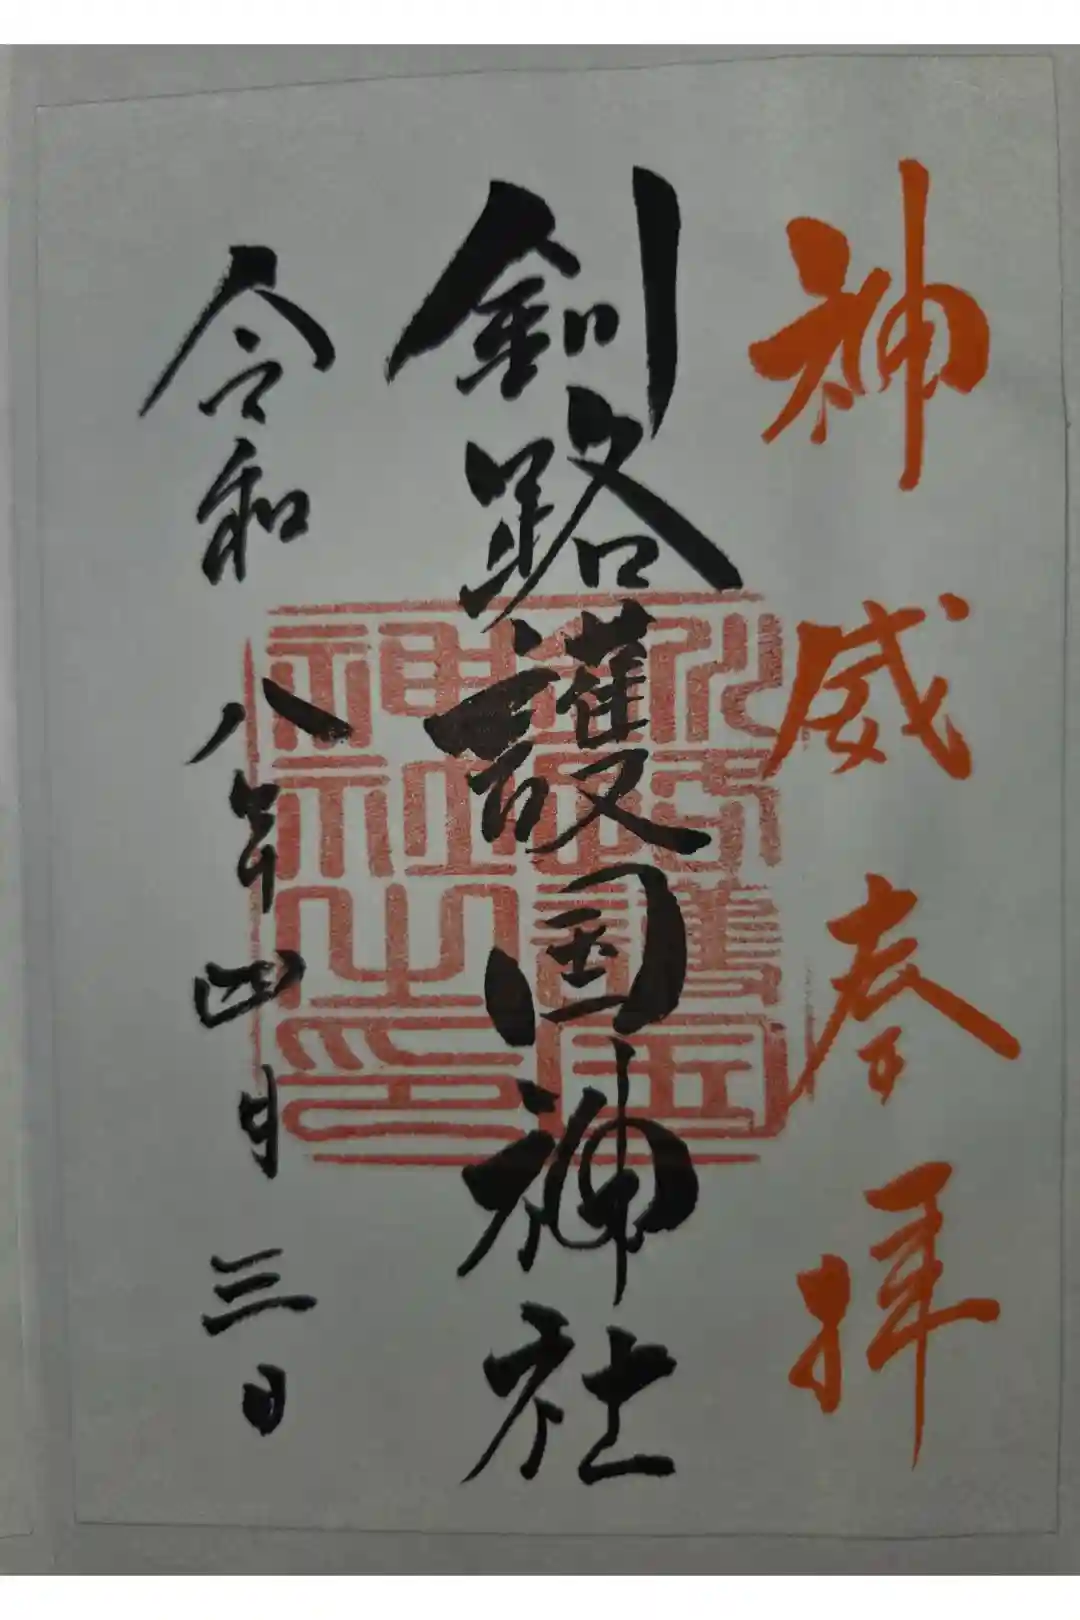 神威奉拝
釧路護国神社
釧路護國神社之印
令和八年四月三日